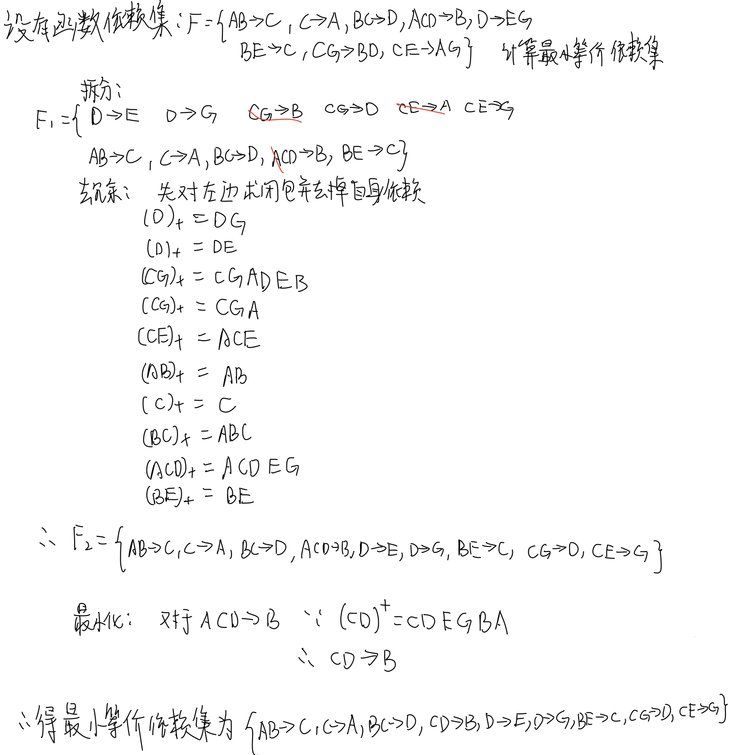 设有函数依赖集:F={AB→C, C→A, BC→D, ACD→B, D→EG
BE→C, CG→BD, CE→AG} 计算最小等价依赖集
拆分:
F₁={D→E D→G CG→B CG→D CE→A CE→G
AB→C, C→A, BC→D, ACD→B, BE→C}
去冗余: 先对左边求闭包并去掉自身依赖
(D)+ = DG
(D)+ = DE
(CG)+ = CGADEB
(CG)+ = CGA
(CE)+ = ACE
(AB)+ = AB
(C)+ = C
(BC)+ = ABC
(ACD)+ = ACDEG
(BE)+ = BE
∴ F₂={AB→C, C→A, BC→D, ACD→B, D→E, D→G, BE→C, CG→D, CE→G}
最小化: 对于ACD→B ∵ (CD)⁺=CDEGBA
∴ CD→B
∴得最小等价依赖集为 {AB→C, C→A, BC→D, CD→B, D→E, D→G, BE→C, CG→D, CE→G}